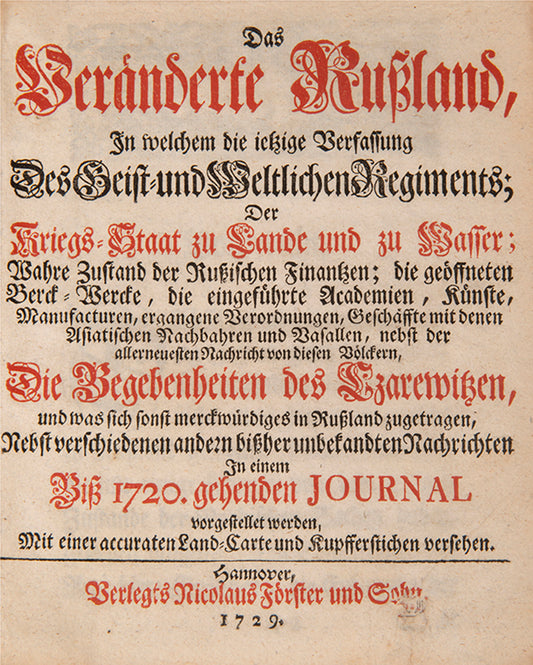 Das
Veränderte Rußland,
In welchem die ietzige Verfassung
Des Geist- und Weltlichen Regiments;
Der
Kriegs-Staat zu Lande und zu Wasser;
Wahre Zustand der Rußischen Finantzen; die geöffneten
Berck-Wercke, die eingeführte Academien, Künste,
Manufacturen, ergangene Verordnungen, Geschäffte mit denen
Asiatischen Nachbahren und Vasallen, nebst der
allerneuesten Nachricht von diesen Völckern,
Die Begebenheiten des Czarewitzen,
und was sich sonst merckwürdiges in Rußland zugetragen,
Nebst verschiedenen andern bißher unbekandten Nachrichten
In einem
Biß 1720. gehenden JOURNAL
vorgestellet werden,
Mit einer accuraten Land-Carte und Kupfferstichen versehen.
Hannover,
Verlegts Nicolaus Förster und Sohn.
1729.